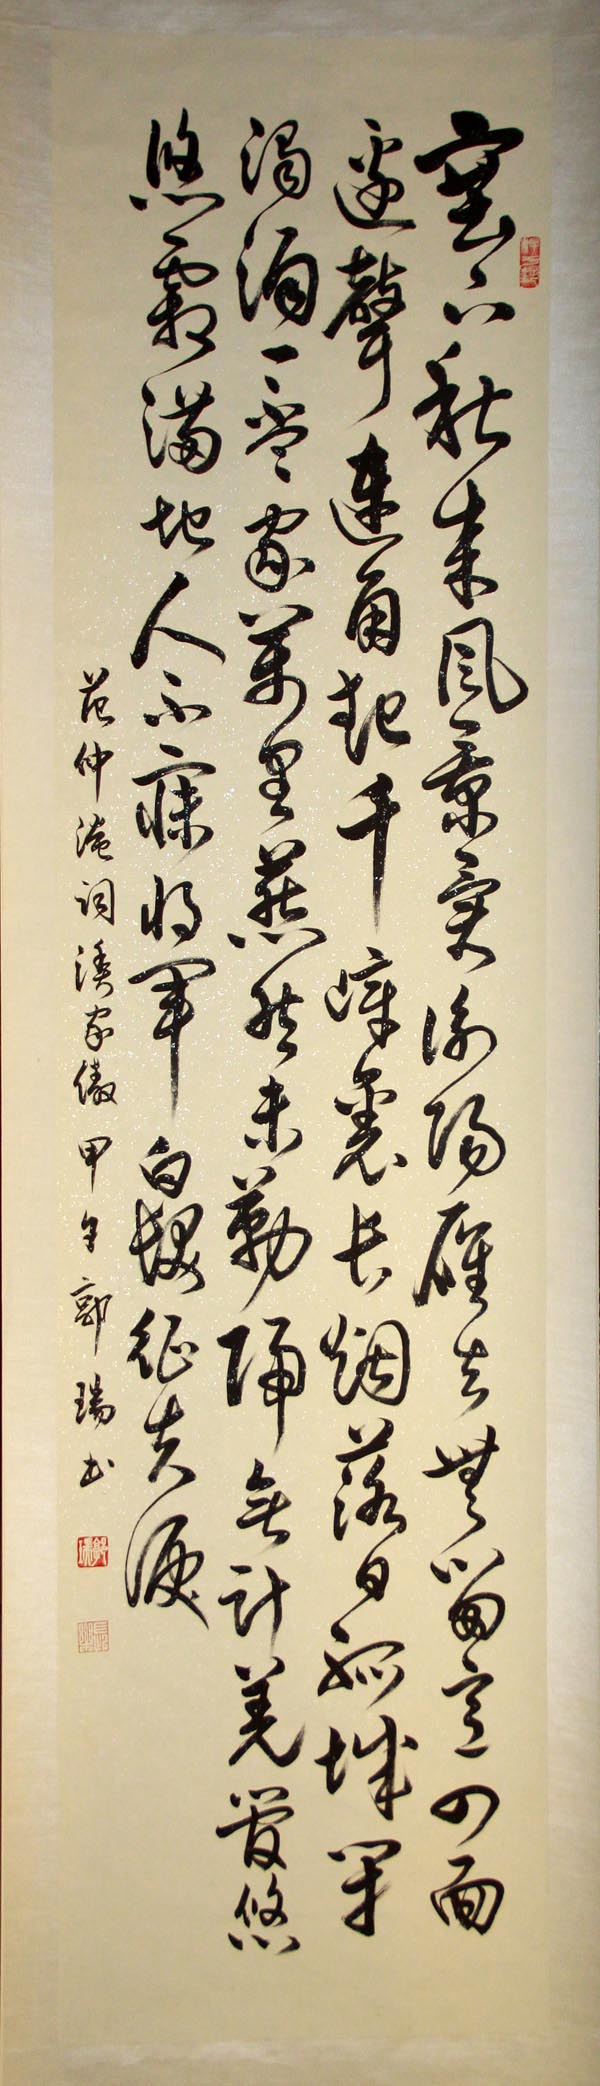 塞下秋来风景異衡陽雁去無留意四面
邊聲連角起千嶂裏長烟落日孤城閉
濁酒一盃家萬里燕然未勒歸無計羌管悠
悠霜滿地人不寐將軍白髮征夫淚
范仲淹詞漁家傲甲午郭瑞书